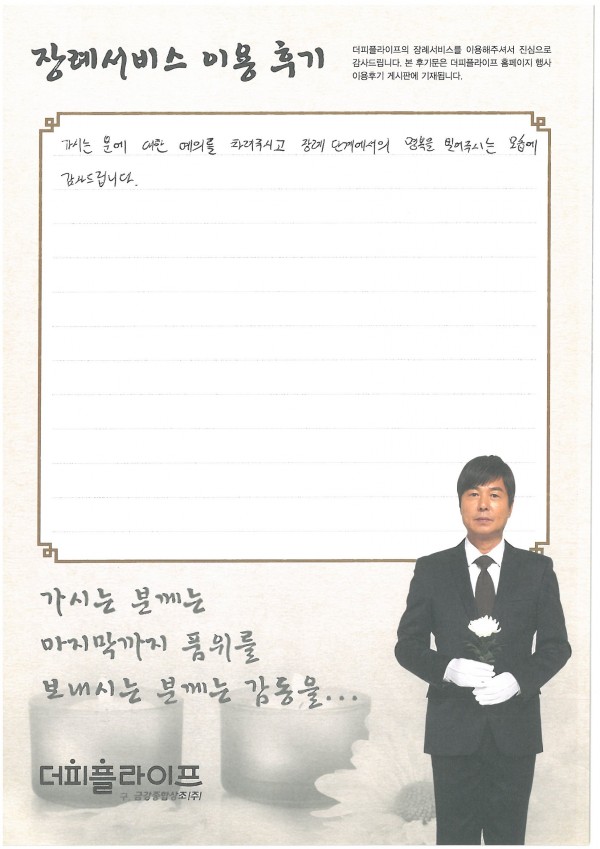 장례서비스 이용 후기
더피플라이프의 장례서비스를 이용해주셔서 진심으로
감사드립니다. 본 후기문은 더피플라이프 홈페이지 행사
이용후기 게시판에 기재됩니다.
가시는 분에 대한 예의를 차려주시고 장례 단계에서의 명복을 빌어주시는 모습에
감사드립니다.
가시는 분께는
마지막까지 품위를
보내시는 분께는 감동을...
더피플라이프
구. 금강종합상조(주)